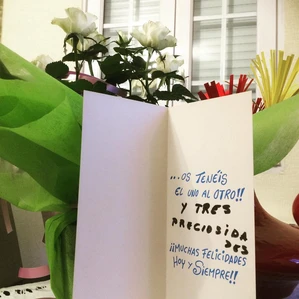 ...OS TENÉIS
EL UNO AL OTRO!!
Y TRES
PRECIOSIDA
DES
¡¡MUCHAS FELICIDADES
HOY Y SIEMPRE!!